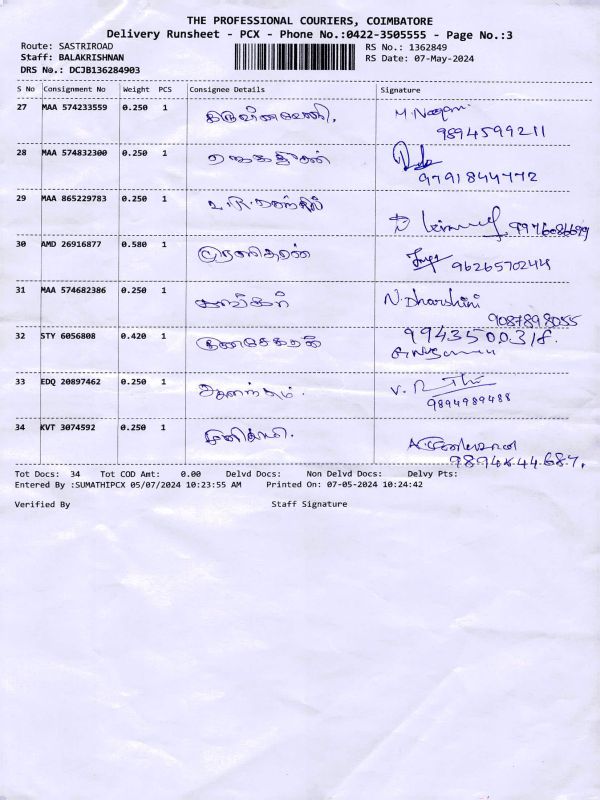 THE PROFESSIONAL COURIERS, COIMBATORE
Delivery Runsheet - PCX - Phone No.:0422-3505555 - Page No.:3
Route: SASTRIROAD RS No.: 1362849
Staff: BALAKRISHNAN RS Date: 07-May-2024
DRS No.: DCJB136284903
S No Consignment No Weight PCS Consignee Details Signature
27 MAA 574233559 0.250 1 திருவிளவேணி.
9894599211
28 MAA 574832300 0.250 1
9791844772
29 MAA 865229783 0.250 1
9976086699
30 AMD 26916877 0.580 1 முரளிதரன்
9626570244
31 MAA 574682386 0.250 1 N. Dharshini
9087898055
32 STY 6056808 0.420 1 குணசேகரன் 9943500318.
33 EDQ 20897462 0.250 1 ஆனந்தம்.
9894989488
34 KVT 3074592 0.250 1
9894844687.
Tot Docs: 34 Tot COD Amt: 0.00 Delvd Docs: Non Delvd Docs: Delvy Pts:
Entered By :SUMATHIPCX 05/07/2024 10:23:55 AM Printed On: 07-05-2024 10:24:42
Verified By Staff Signature